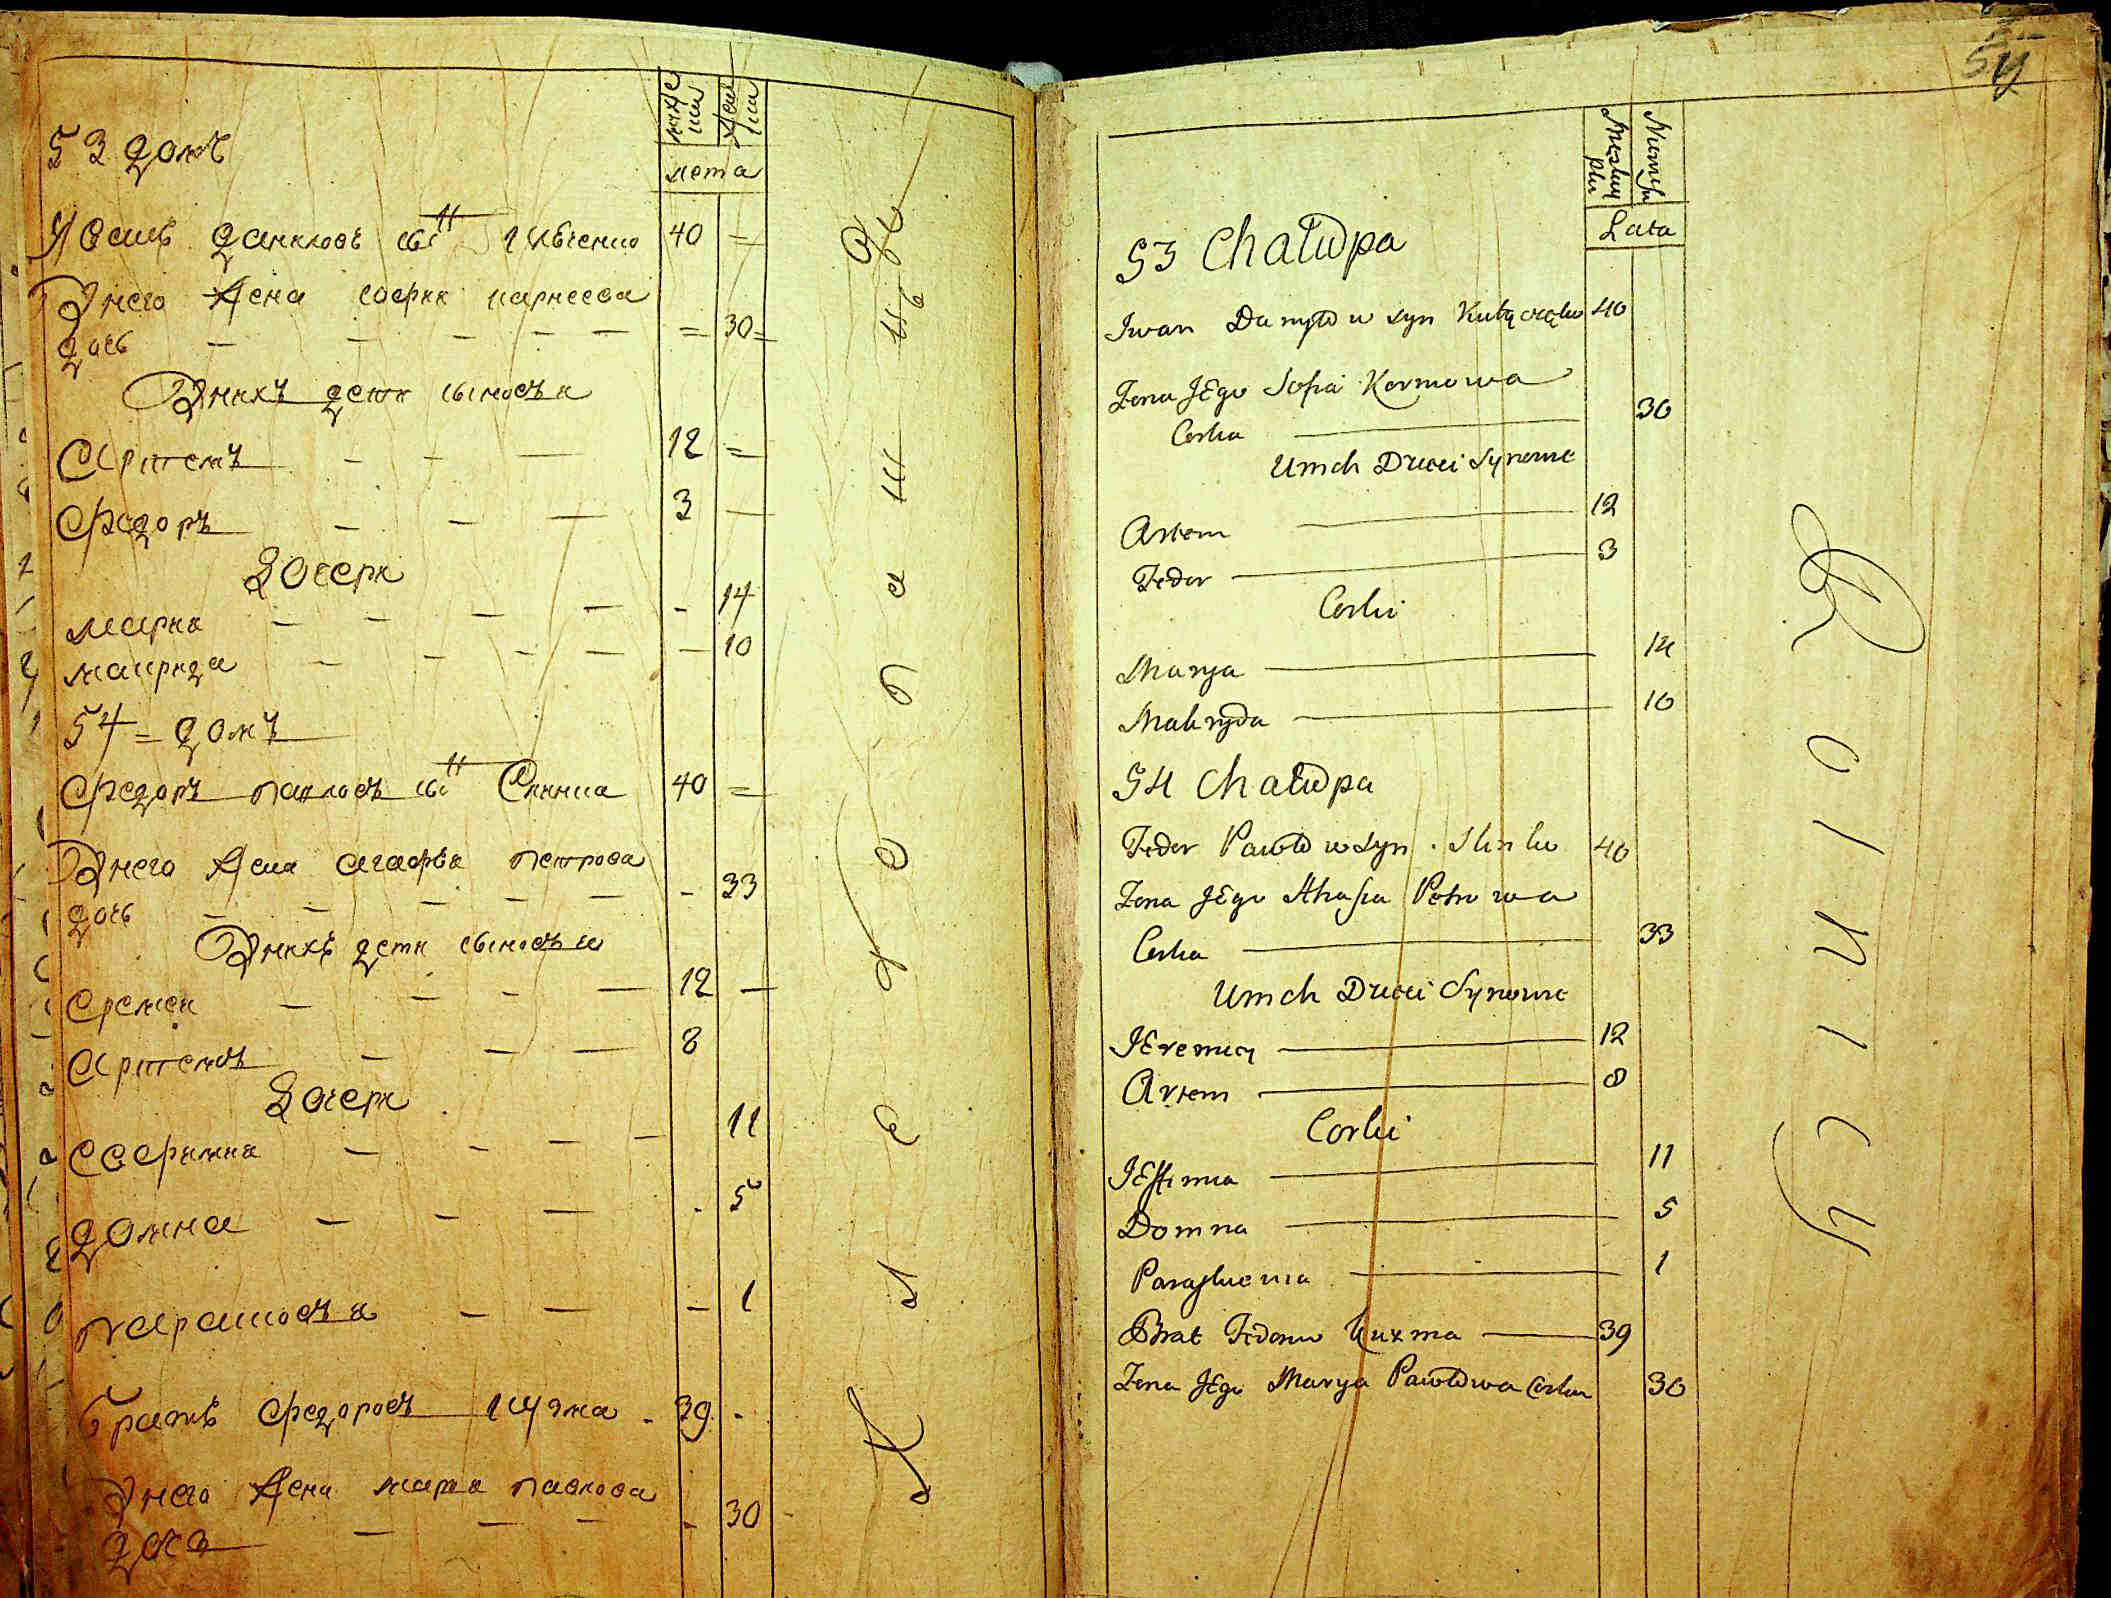 муже
ски
жен
ски
лета
53 домъ
Иванъ Даниловъ сы͠н
40 =
Унего жена софия карнеева
дочь = 30 =
Унихъ дети сыновья
Артемъ 12 =
Федоръ 3 —
Дочери
Мария - 14
макрида - 10
54 = домъ
Федоръ павловъ сы͠н Слинка 40 =
Унего жена агафья петрова
дочь - 33
Унихъ дети сыновья
Еремей 12 —
Артемъ 8
Дочери
Евфимия 11
Домна - 5
парасковья - 1
братъ федоровъ кузма - 39 -
Унего жена мария павлова
дочь - 30
54
Męskey
płci
Niewiesc
Lata
53 Chałupa
Iwan Danyłow syn 40
Zona JEgo Sofia Kornowa
Corka 30
Unich Dzieci Synowie
Artem 12
Fedor 3
Corki
Marya 14
Makryda 10
54 Chałupa
Fedor Pawłow syn Slinka 40
Zona JEgo Ahafia Petrowa
Corka 33
Unich Dzieci Synowie
JEremiey 12
Artem 8
Corki
JEftimia 11
Domna 5
Paraskewia 1
Brat Fedora Kuzma 39
Zona JEgo Marya Pawłowa Corka 30
Rolnicy